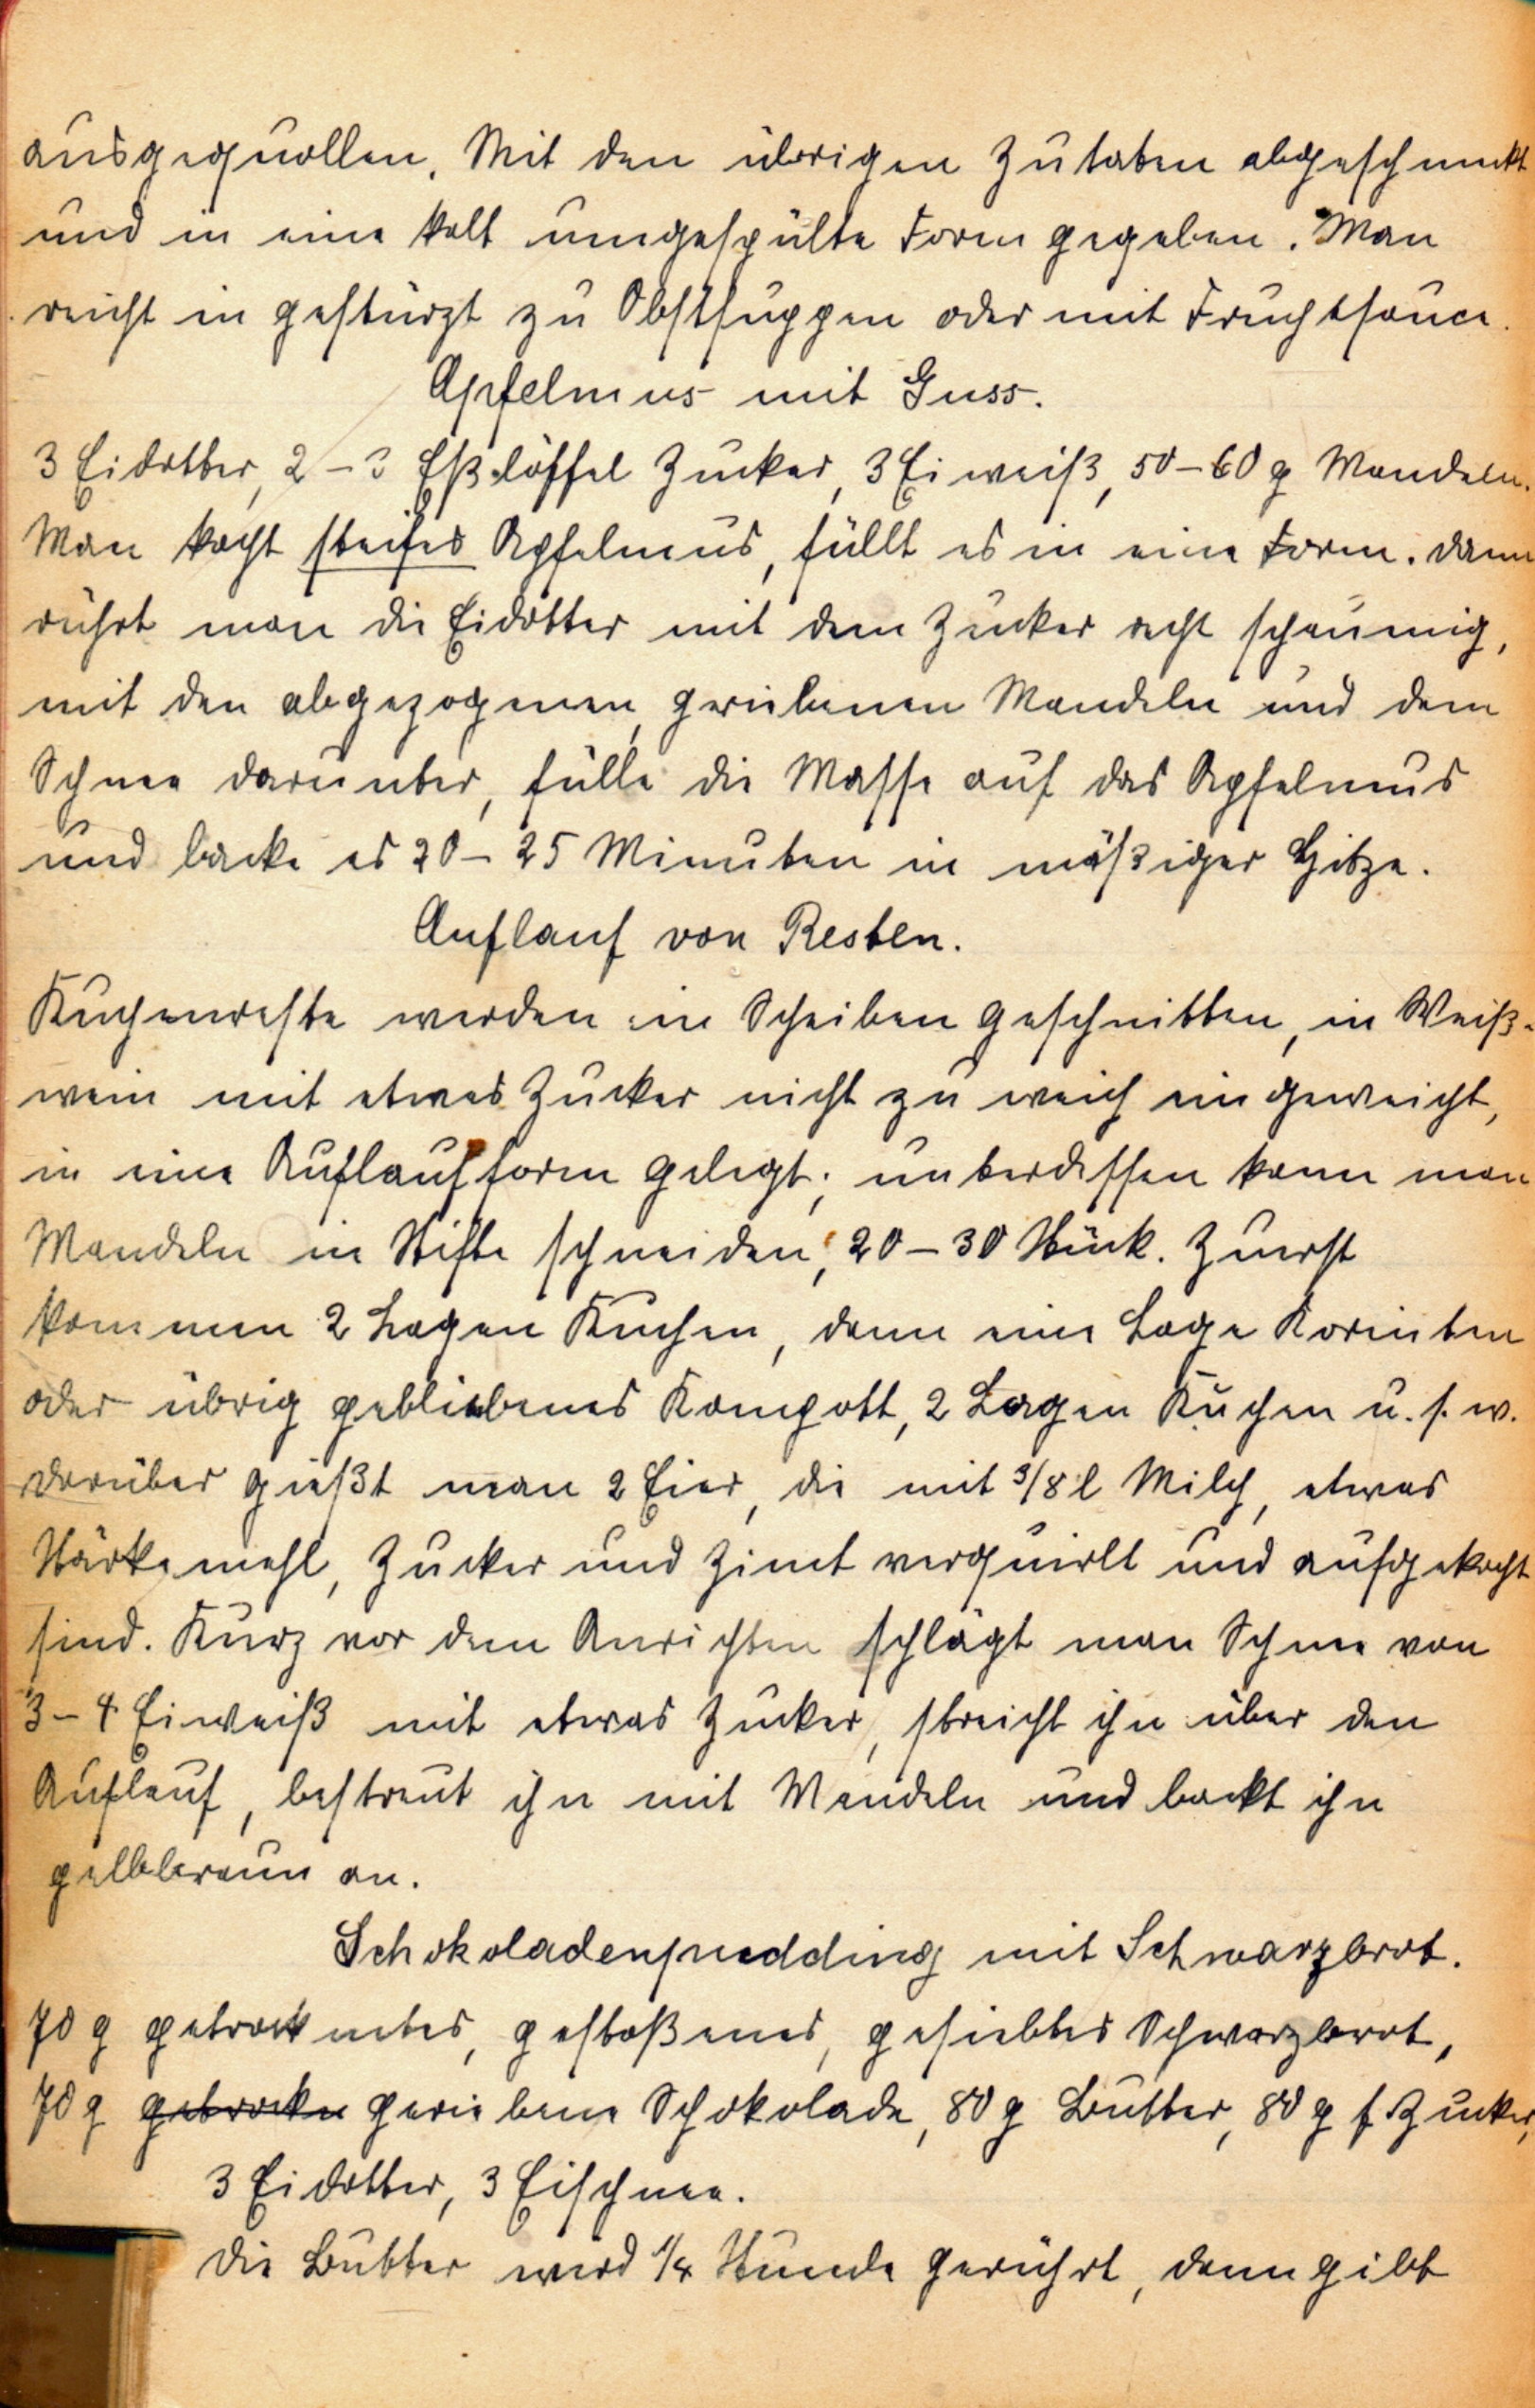 ausgequollen. Mit den übrigen Zutaten abgeschmeckt
und in eine kalt umgespülte Form gegeben. Man
reicht in gestürzt zu Obstsuppen oder mit Fruchtsauce.
Apfelmus mit Guss.
3 Eidotter, 2-3 Eßlöffel Zucker, 3 Eiweiß, 50-60 g Mandeln.
Man kocht steifes Apfelmus, füllt es in eine Form. Dann
rührt man die Eidotter mit dem Zucker recht schaumig,
mit den abgezogenen, geriebenen Mandeln und dem
Schnee darunter, fülle die Masse auf das Apfelmus
und backe es 20-25 Minuten in mäßiger Hitze.
Auflauf von Resten.
Kuchenreste werden in Scheiben geschnitten, in Weiß-
wein mit etwas Zucker nicht zu weich eingeweicht,
in eine Auflaufform gelegt; unterdessen kann man
Mandeln in Stifte schneiden, 20-30 Stück. Zuerst
kommen 2 Lagen Kuchen, dann eine Lage Korinten
oder übrig gebliebenes Kompott, 2 Lagen Kuchen u.s.w.
Darüber gießt man 2 Eier, die mit 3/8 l Milch, etwas
Stärkemehl, Zucker und Zimt verquirlt und aufgekocht
sind. Kurz vor dem Anrichten schlägt man Schnee von
3-4 Eiweiß mit etwas Zucker, streicht ihn über den
Auflauf, bestreut ihn mit Mandeln und backt ihn
gelbbraun an.
Schokoladenpudding mit Schwarzbrot.
70 g getrocknetes, gestoßenes, gesiebtes Schwarzbrot,
70 g getrocken geriebene Schokolade, 80 g Butter, 80 g f. Zucker,
3 Eidotter, 3 Eischnee.
Die Butter wird 1/4 Stunde gerührt, dann gibt